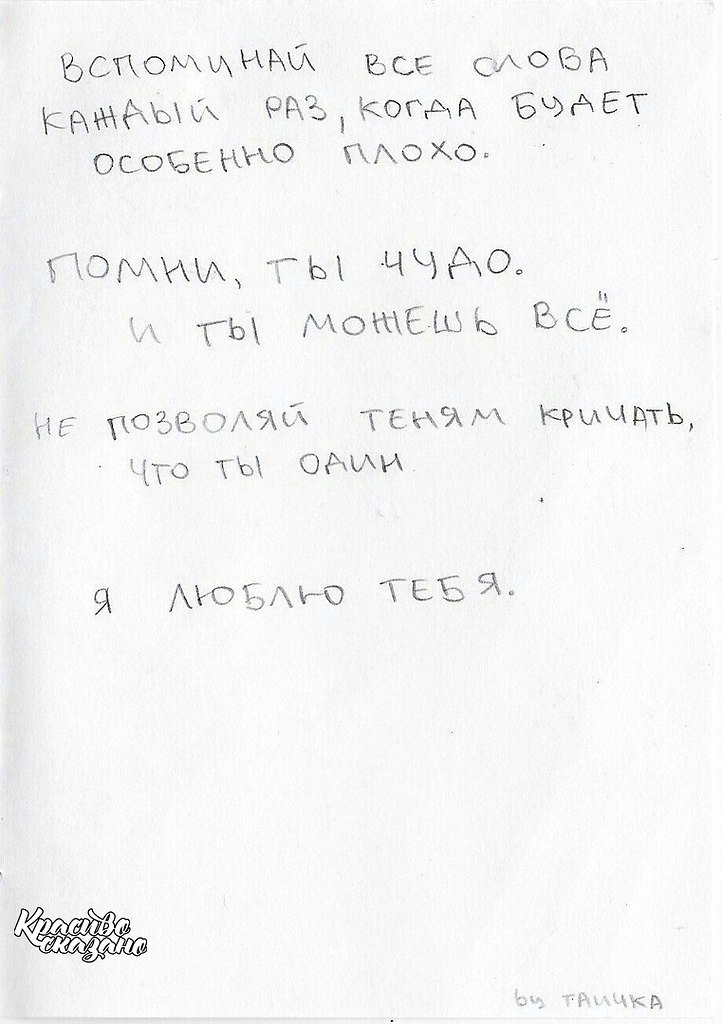 ВСПОМИНАЙ ВСЕ СЛОВА
КАЖДЫЙ РАЗ, КОГДА БУДЕТ
ОСОБЕННО ПЛОХО.
ПОМНИ, ТЫ ЧУДО.
И ТЫ МОЖЕШЬ ВСЁ.
НЕ ПОЗВОЛЯЙ ТЕНЯМ КРИЧАТЬ,
ЧТО ТЫ ОДИН
Я ЛЮБЛЮ ТЕБЯ.
Красиво
сказано
by ТАИЧКА